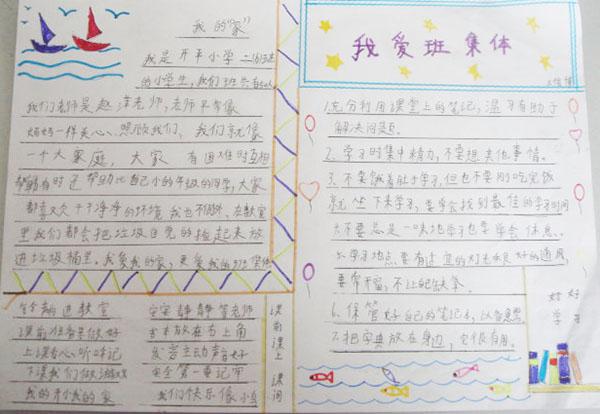 我的“家”
我是开平小学二(3)班
的小学生,我们班共有
我们老师是赵
老师,老师平常像
妈妈一样关心、照顾我们,我们就像
一个大家庭,大家有困难时互相
帮助有时还帮助比自己小的年级的同学,大家
都喜欢干干净净的环境我也不例外,在教室
里我们都会把垃圾自觉的捡起来放
进垃圾桶里,我爱我的家,更爱我的班集体
课前准备要做好
上课专心听
下课我们做游戏
我的
安安静静等老师
放在右上角
发言主动声音好
安全第一要记牢
我们快乐像小鸟
课前
课上
课间
我爱班集体
1.充分利用课堂上的笔记,温习有助于
解决问题。
2.学习时集中精力,不要想其他事情。
3.不要饿着肚子学习,但也不要刚吃完饭
就坐下来学习,要学会找到最佳的学习时间
4.不要总是一味地学习也要学会休息。
5.学习地点要有适宜的灯光和良好的通风,
要常开窗,不让
6.保管好自己的笔记本,以备
7.把字典放在身边,它很有用。
好好
学习